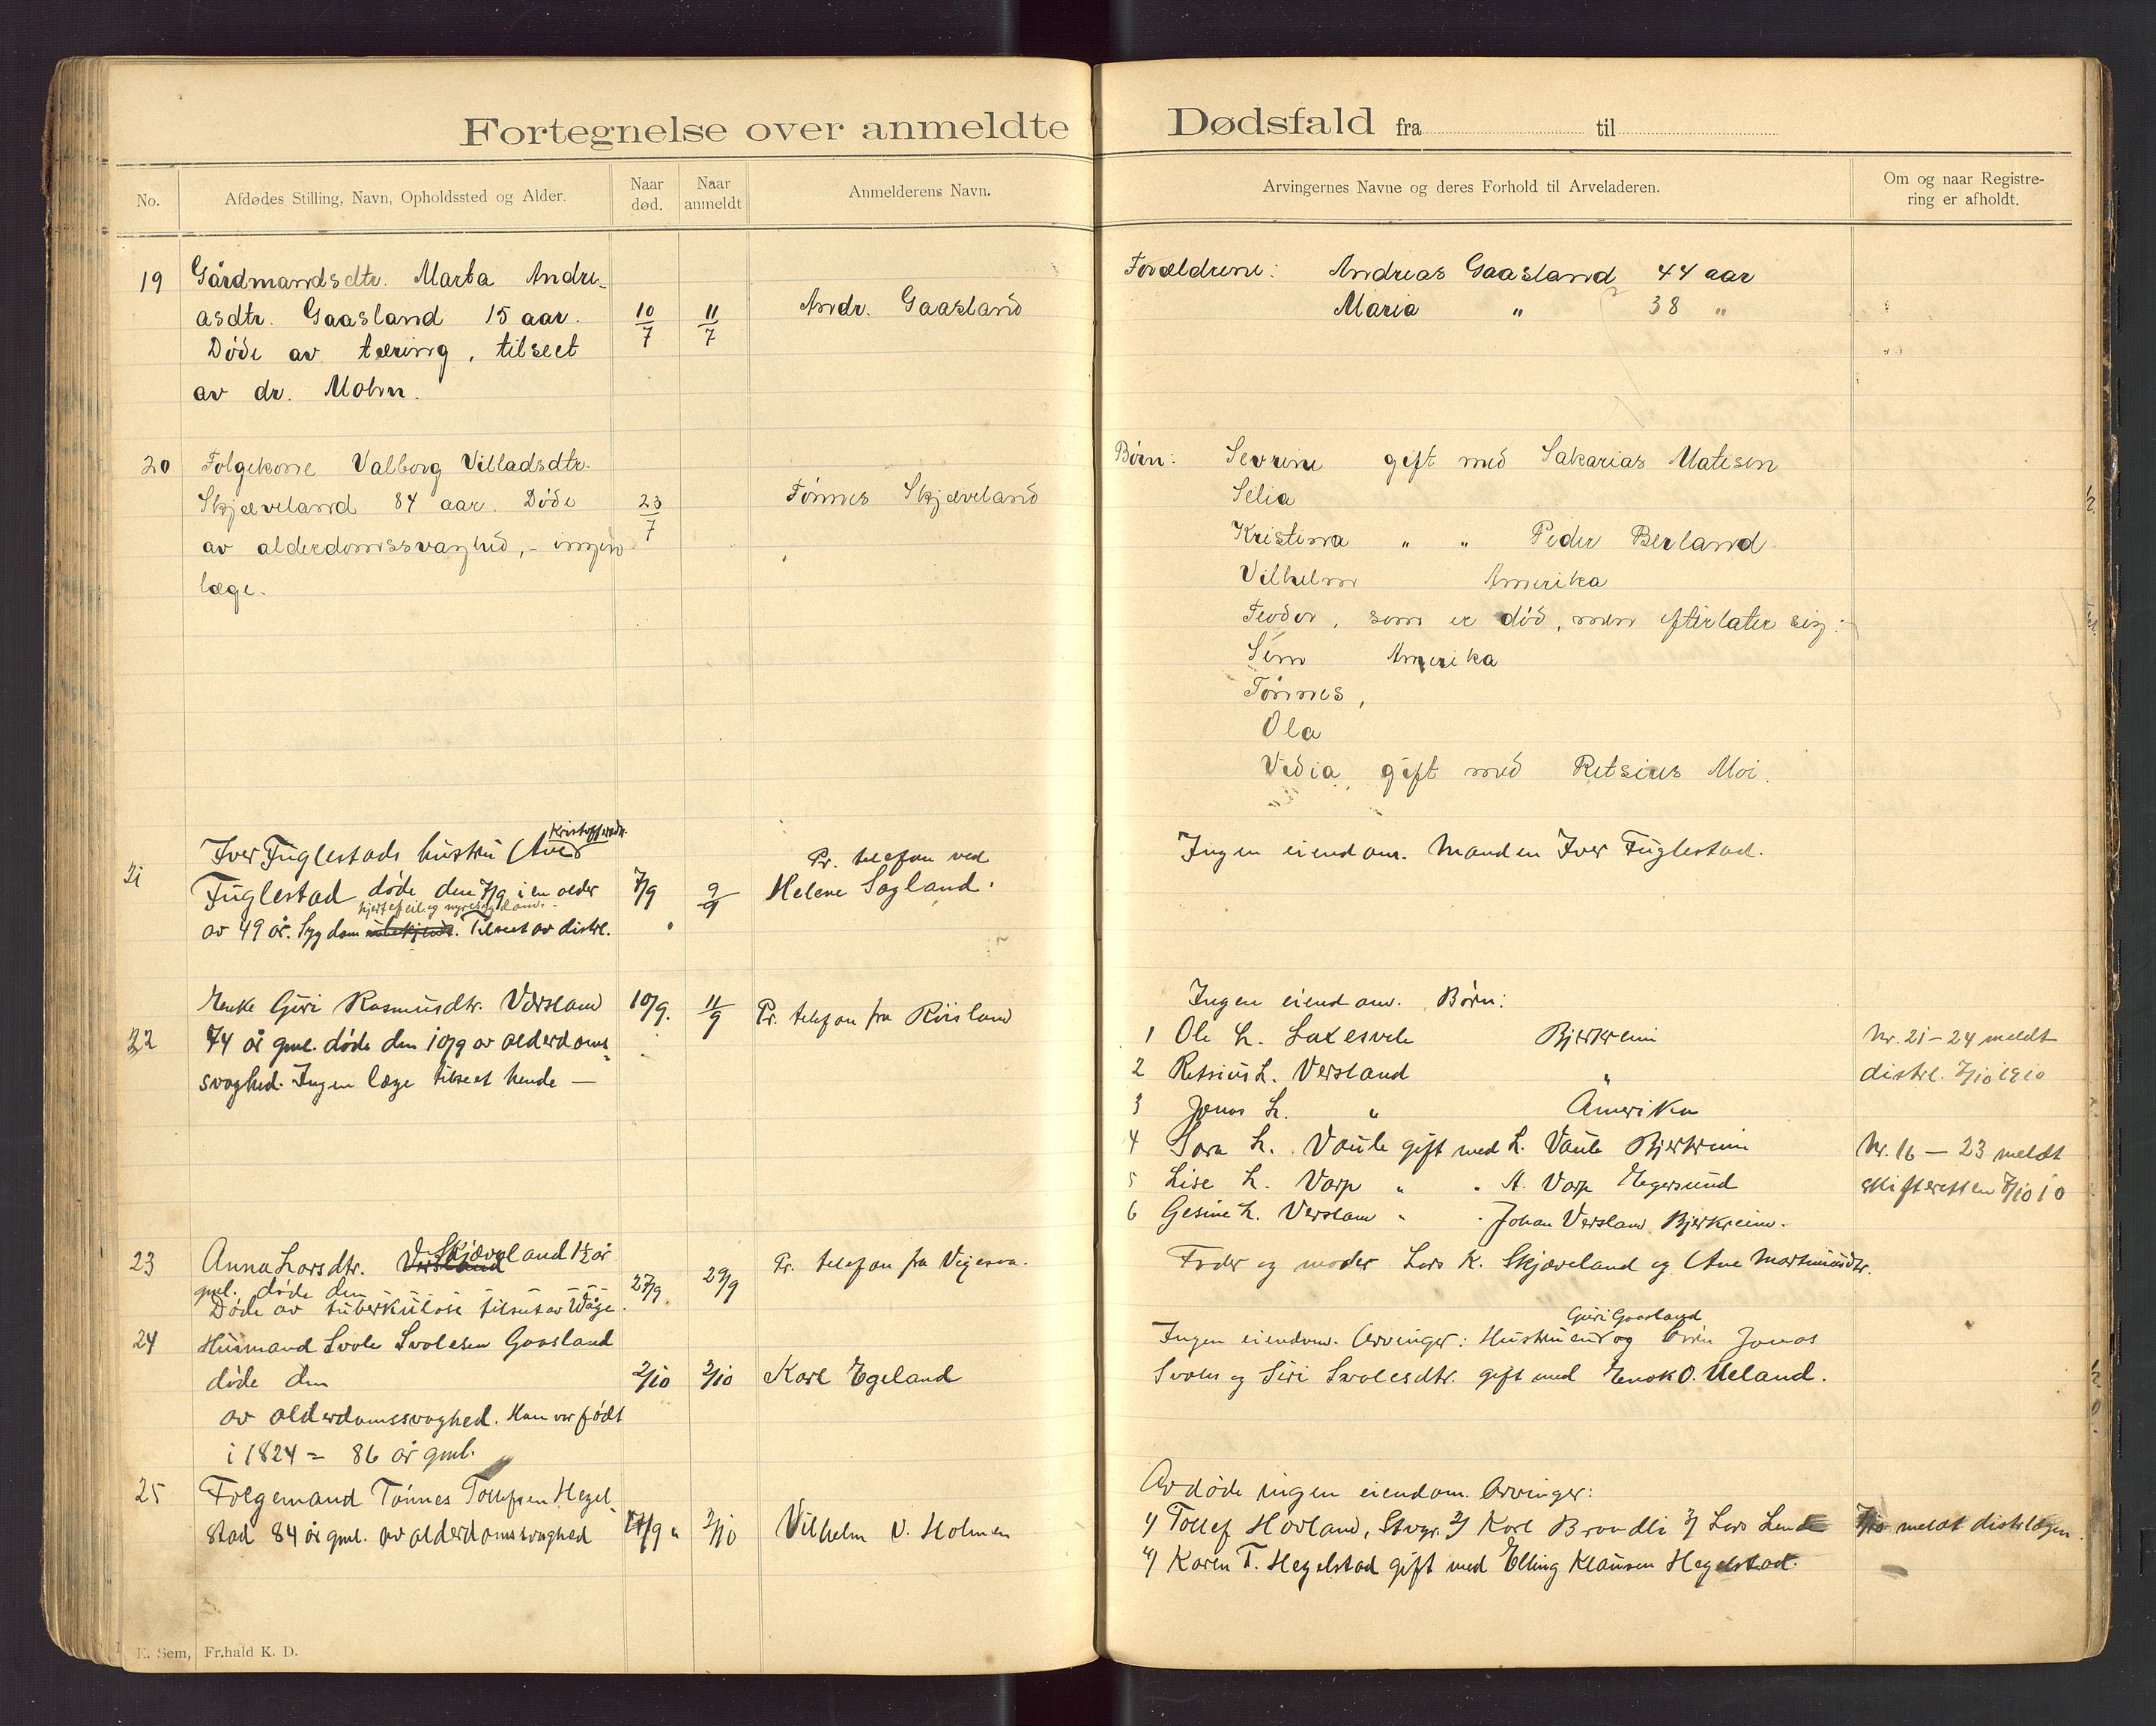 Fortegnelse over anmeldte Dødsfald fra til
No.
Afdødes Stilling, Navn, Opholdssted og Alder.
Naar død.
Naar anmeldt
Anmelderens Navn.
Arvingernes Navne og deres Forhold til Arveladeren.
Om og naar Registre-
ring er afholdt.
19 Gårdmandsdtr. Marta Andre-
asdtr. Gaasland 15 aar.
Døde av tæring, tilseet
av dr. Mohn.
10/7 11/7 Andr. Gaasland
Forældrene: Andreas Gaasland 44 aar
Maria " 38 "
20 Folgekone Valborg Villadsdtr.
Skjæveland 84 aar. Døde
av alderdomssvaghed, - ingen
læge.
23/7 Tønnes Skjæveland
Børn: Sevrine gift med Sakarias Matisen
Selia
Kristina " " Peder Berland
Vilhelm Amerika
Teodor, som er død, men efterlater sig:
Sem Amerika
Tønnes,
Ola
Vedia gift med Retsius Moi.
Kristoffersdtr.
21 Iver Fuglestads hustru Ane
Fuglestad døde den 7/9 i en alder
hjertefeil og nyresygdom.
av 49 år. Sygdom ubekjendt. Tilseet av distrl.
7/9 9/9 Pr. telefon ved
Helene Sagland.
Ingen eiendom. Manden Iver Fuglestad.
22 Enke Guri Rasmusdtr. Versland
74 år gml. døde den 10/9 av alderdoms-
svaghed. Ingen læge tilseet hende —
10/9. 11/9 Pr. telefon fra Røisland
Ingen eiendom. Børn:
1 Ole L. Laxesvele Bjerkreim
2 Retsius L. Versland "
3 Jonas L. " Amerika
4 Sara L. Vaule gift med L. Vaule Bjerkreim
5 Lise L. Varp " " A. Varp Egersund
6 Gesine L. Versland " " Johan Versland Bjerkreim.
Nr. 21 - 24 meldt
distrl. 7/10 1910
Nr. 16 — 23 meldt
skifteretten 7/10 10
23 Anna Larsdtr. Versland Skjæveland 1½ år
gml. døde den
Døde av tuberkulose tilseet av Wåge.
27/9 29/9 Pr. telefon fra Vigesaa.
Fader og moder Lars K. Skjæveland og Ane Martmundtr.
24 Husmand Svale Svalesen Gaasland
døde den
av alderdomssvaghed. Han var født
i 1824 = 86 år gml.
2/10 3/10 Karl Egeland
Guri Gaasland
Ingen eiendom. Arvinger: Hustruen og børn Jonas
Svales og Siri Svalesdtr. gift med Enok O. Ueland.
25 Folgemand Tønnes Tollefsen Hegel-
stad 84 år gml. av alderdomssvaghed
17/9 3/10 Vilhelm V. Holmen
Avdøde ingen eiendom. Arvinger:
1/ Tollef Hovland, Stvgr. 2/ Karl Brandli 3/ Lars Lende
4/ Karen T. Hegelstad gift med Elling Klausen Hegelstad.
7/10 meldt distrlægen.
E. Sem, Fr.hald K. D.